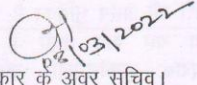 08/03/2022
कार के अवर सचिव।